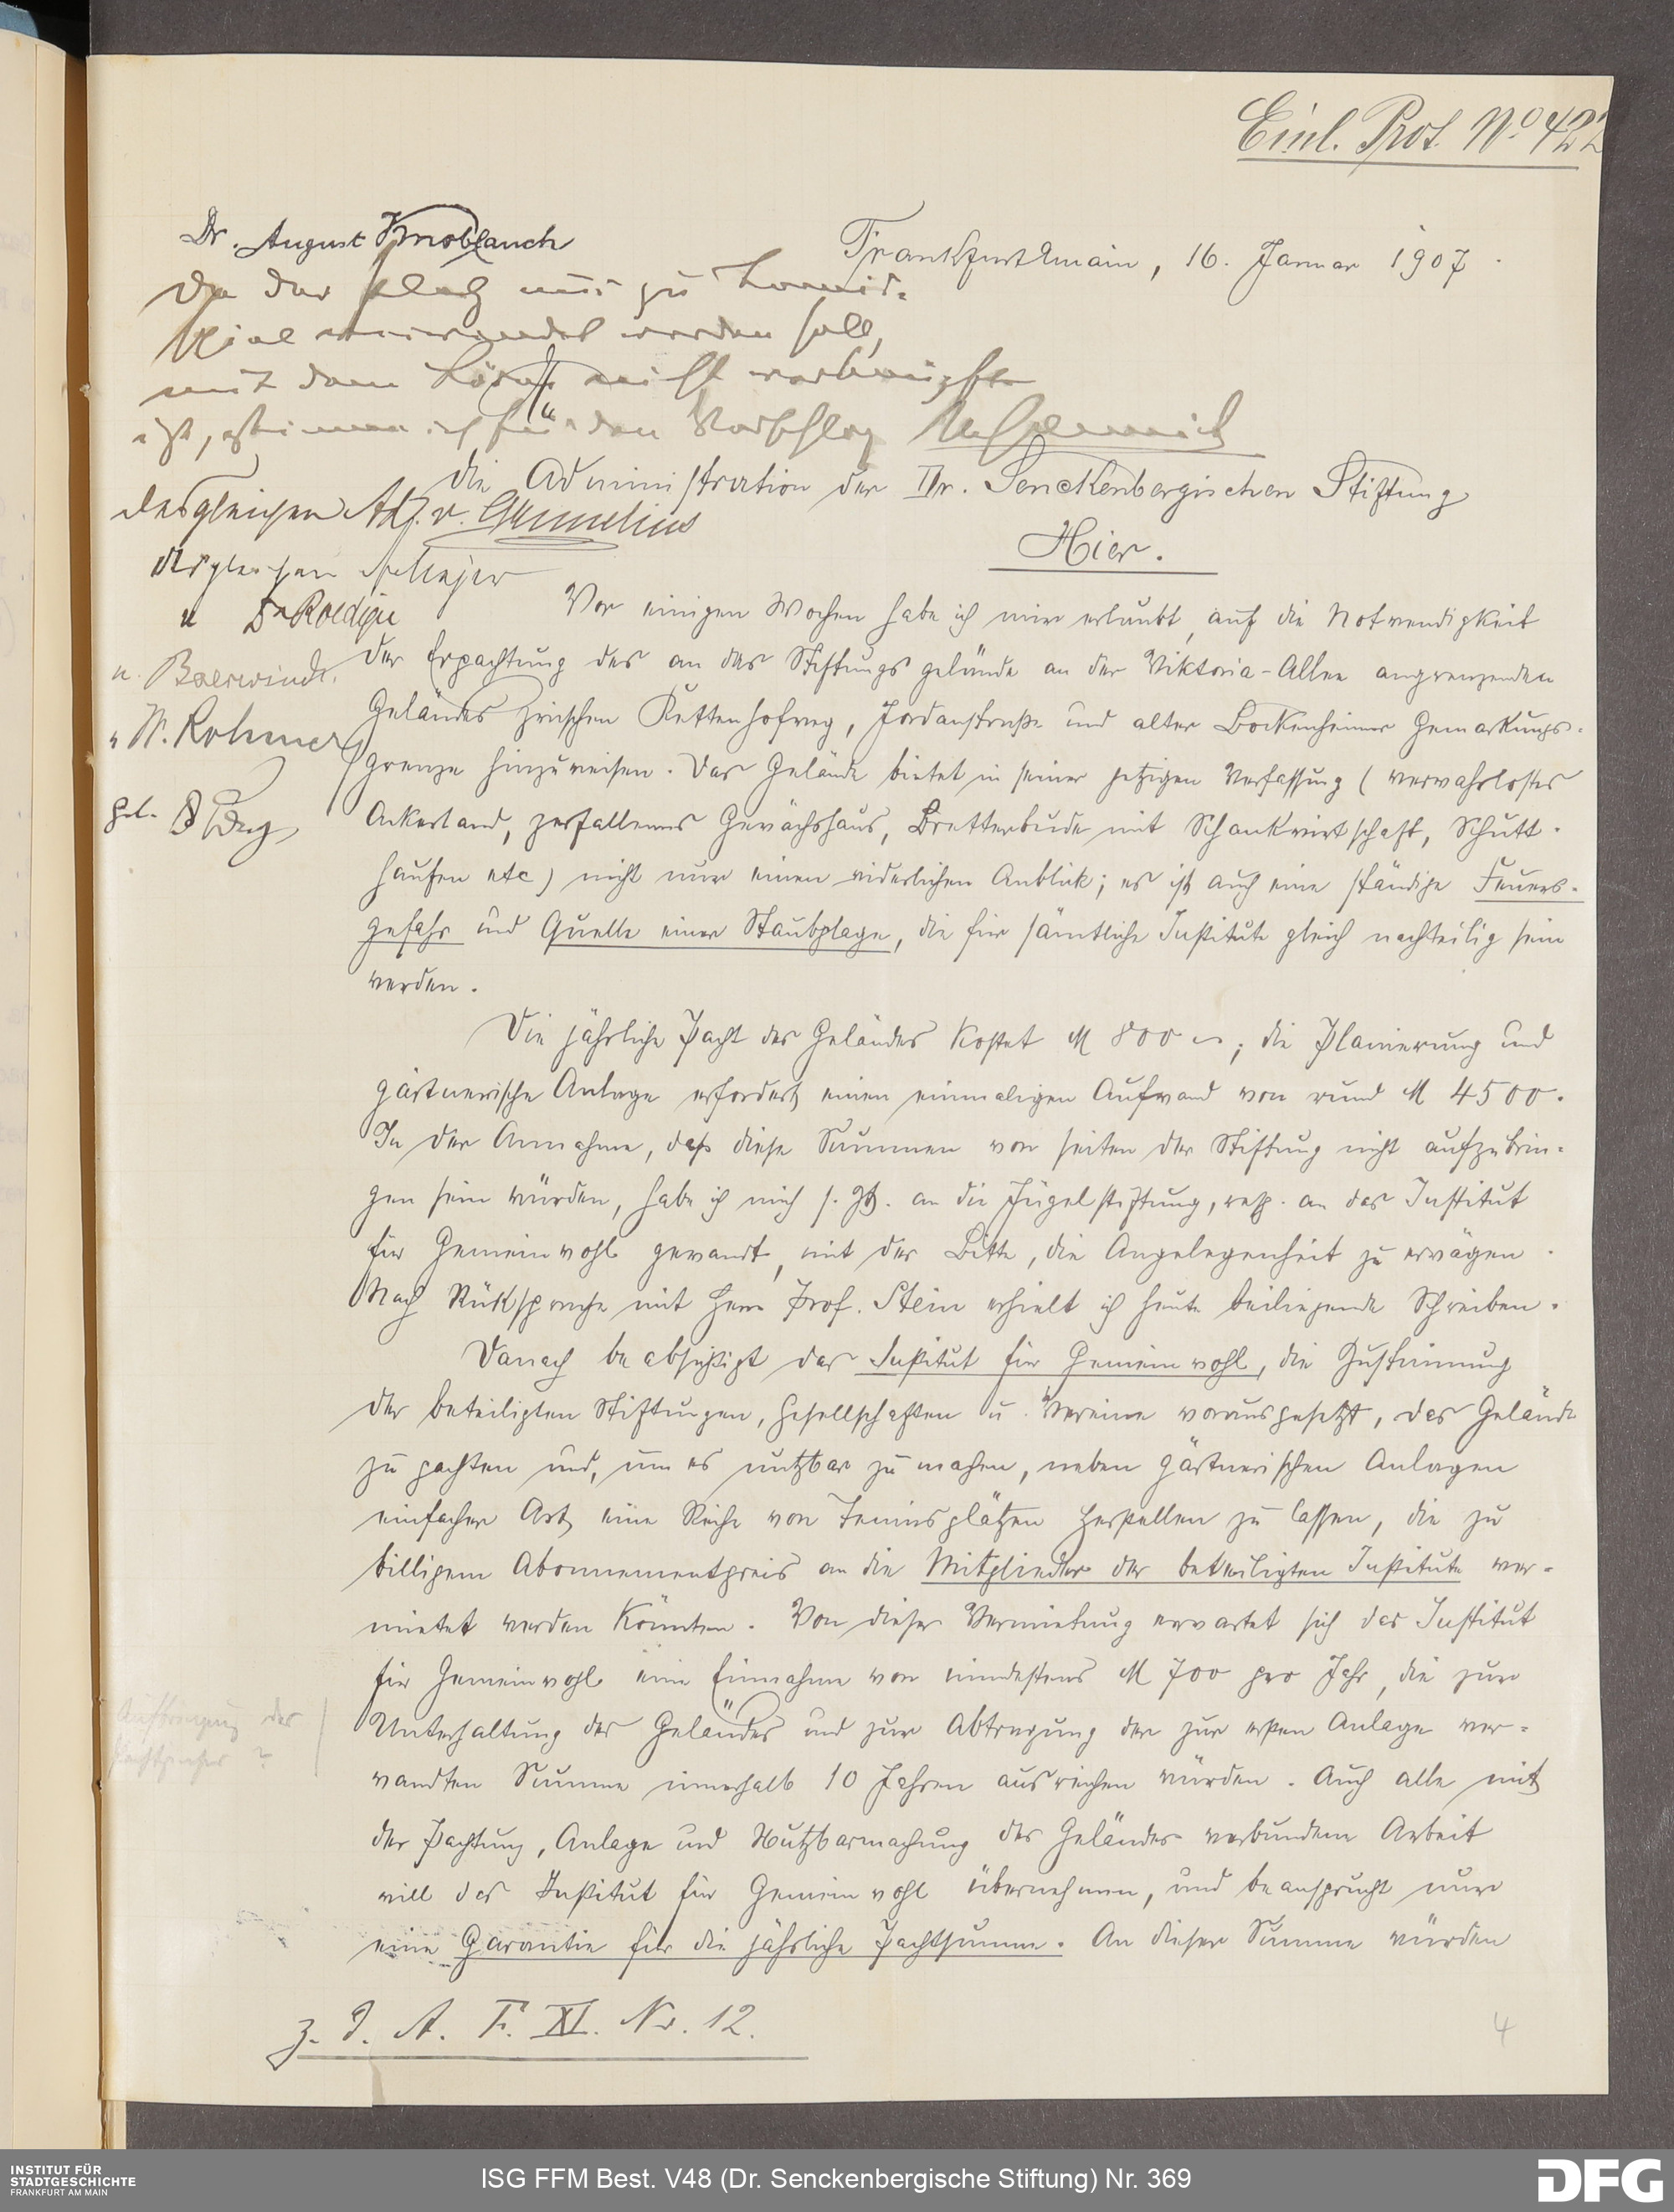 Einl. Prot. No 422
Dr. August Knoblauch
Frankfurt a/main, 16. Januar 1907.
Da der Platz nur zu
spiel verwendet werden soll,
mit dem Lärm nicht verknüpft
ist, stimme ich für den Vorschlag
An
die Administration der Dr. Senckenbergischen Stiftung
Hier.
desgleichen Adf. v. Grunelius
desgleichen
" Dr Roediger
Vor einigen Wochen habe ich mir erlaubt, auf die Notwendigkeit
der Erpachtung des an das Stiftungsgelände an der Viktoria-Allee angrenzenden
" Baerwindt.
Geländes zwischen Kettenhofweg, Jordanstraße und alter Bockenheimer Gemarkungs-
" W. Rohmer
grenze hinzuweisen. Das Gelände bietet in seiner jetzigen Verfassung (verwahrlostes
Ackerland, zerfallenes Gewächshaus, Bretterbude mit Schankwirtschaft, Schutt-
haufen etc) nicht nur einen widerlichen Anblick; es ist auch eine ständige Feuers-
gefahr und Quelle einer Staubplage, die für sämtliche Institute gleich nachteilig sein
werden.
Die jährliche Pacht des Geländes kostet M 800 –; die Planierung und
gärtnerische Anlage erfordert einen einmaligen Aufwand von rund M 4500.
In der Annahme, daß diese Summen von seiten der Stiftung nicht aufzubrin-
gen sein würden, habe ich mich s. Zt. an die Jügelstiftung, resp. an das Institut
für Gemeinwohl gewandt, mit der Bitte, die Angelegenheit zu erwägen.
Nach Rüksprache mit Herrn Prof. Stein erhielt ich heute beiliegende Schreiben.
Danach beabsichtigt das Institut für Gemeinwohl, die Zustimmung
der beteiligten Stiftungen, Gesellschaften u. Vereine vorausgesetzt, das Gelände
zu pachten und, um es nutzbar zu machen, neben gärtnerischen Anlagen
einfacher Art, eine Reihe von Tennisplätzen herstellen zu lassen, die zu
billigem Abonnementpreis an die Mitglieder der beteiligten Institute ver-
mietet werden könnten. Von dieser Vermietung erwartet sich das Institut
für Gemeinwohl eine Einnahme von mindestens M 700 pro Jahr, die zur
Unterhaltung des Geländes und zur Abtragung der zur ersten Anlage ver-
wandten Summe innerhalb 10 Jahren ausreichen würden. Auch alle mit
der Pachtung, Anlage und Nutzbarmachung des Geländes verbundene Arbeit
will das Institut für Gemeinwohl übernehmen, und beansprucht nur
eine Garantie für die jährliche Pachtsumme. An dieser Summe würden
z. d. A. F. XI. No. 12.
4
INSTITUT FÜR
STADTGESCHICHTE
FRANKFURT AM MAIN
ISG FFM Best. V48 (Dr. Senckenbergische Stiftung) Nr. 369
DFG